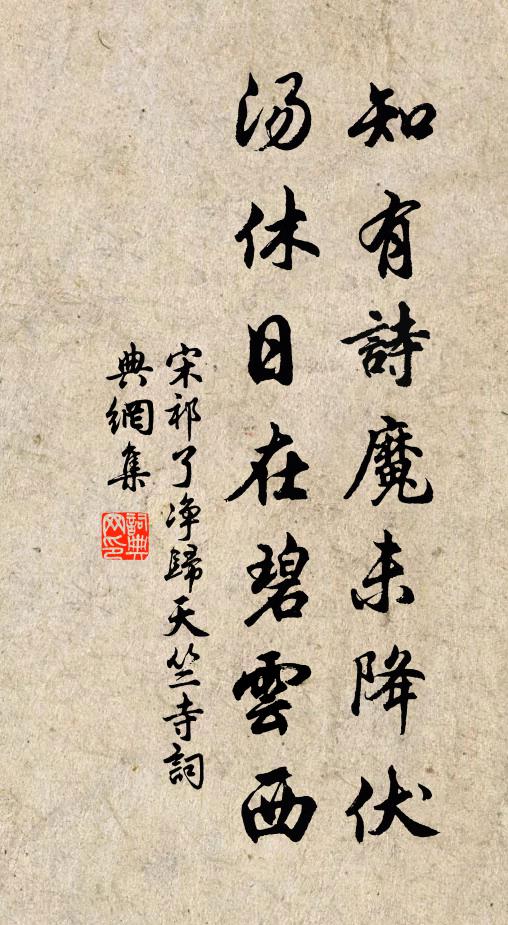 知有詩魔未降伏
湯休日在碧雲西
宋祁了淨歸天竺寺詞
典網集
詞典
网印